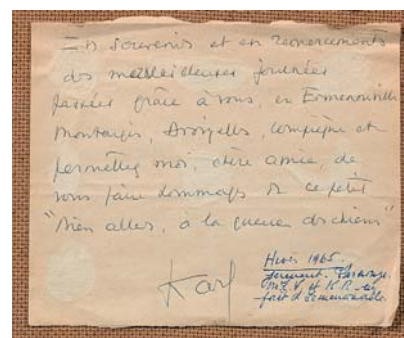 En souvenir et en remerciements
des merveilleuses journées
passées grâce à vous, en Ermenonville
Montargis, , Compiègne et
permettez moi, chère amie, de
vous faire hommage de ce petit
"bien aller, à la queue des chiens"
Karl
Hiver 1965.
M.E.V. et K.R. en
forêt d'Ermenonville.